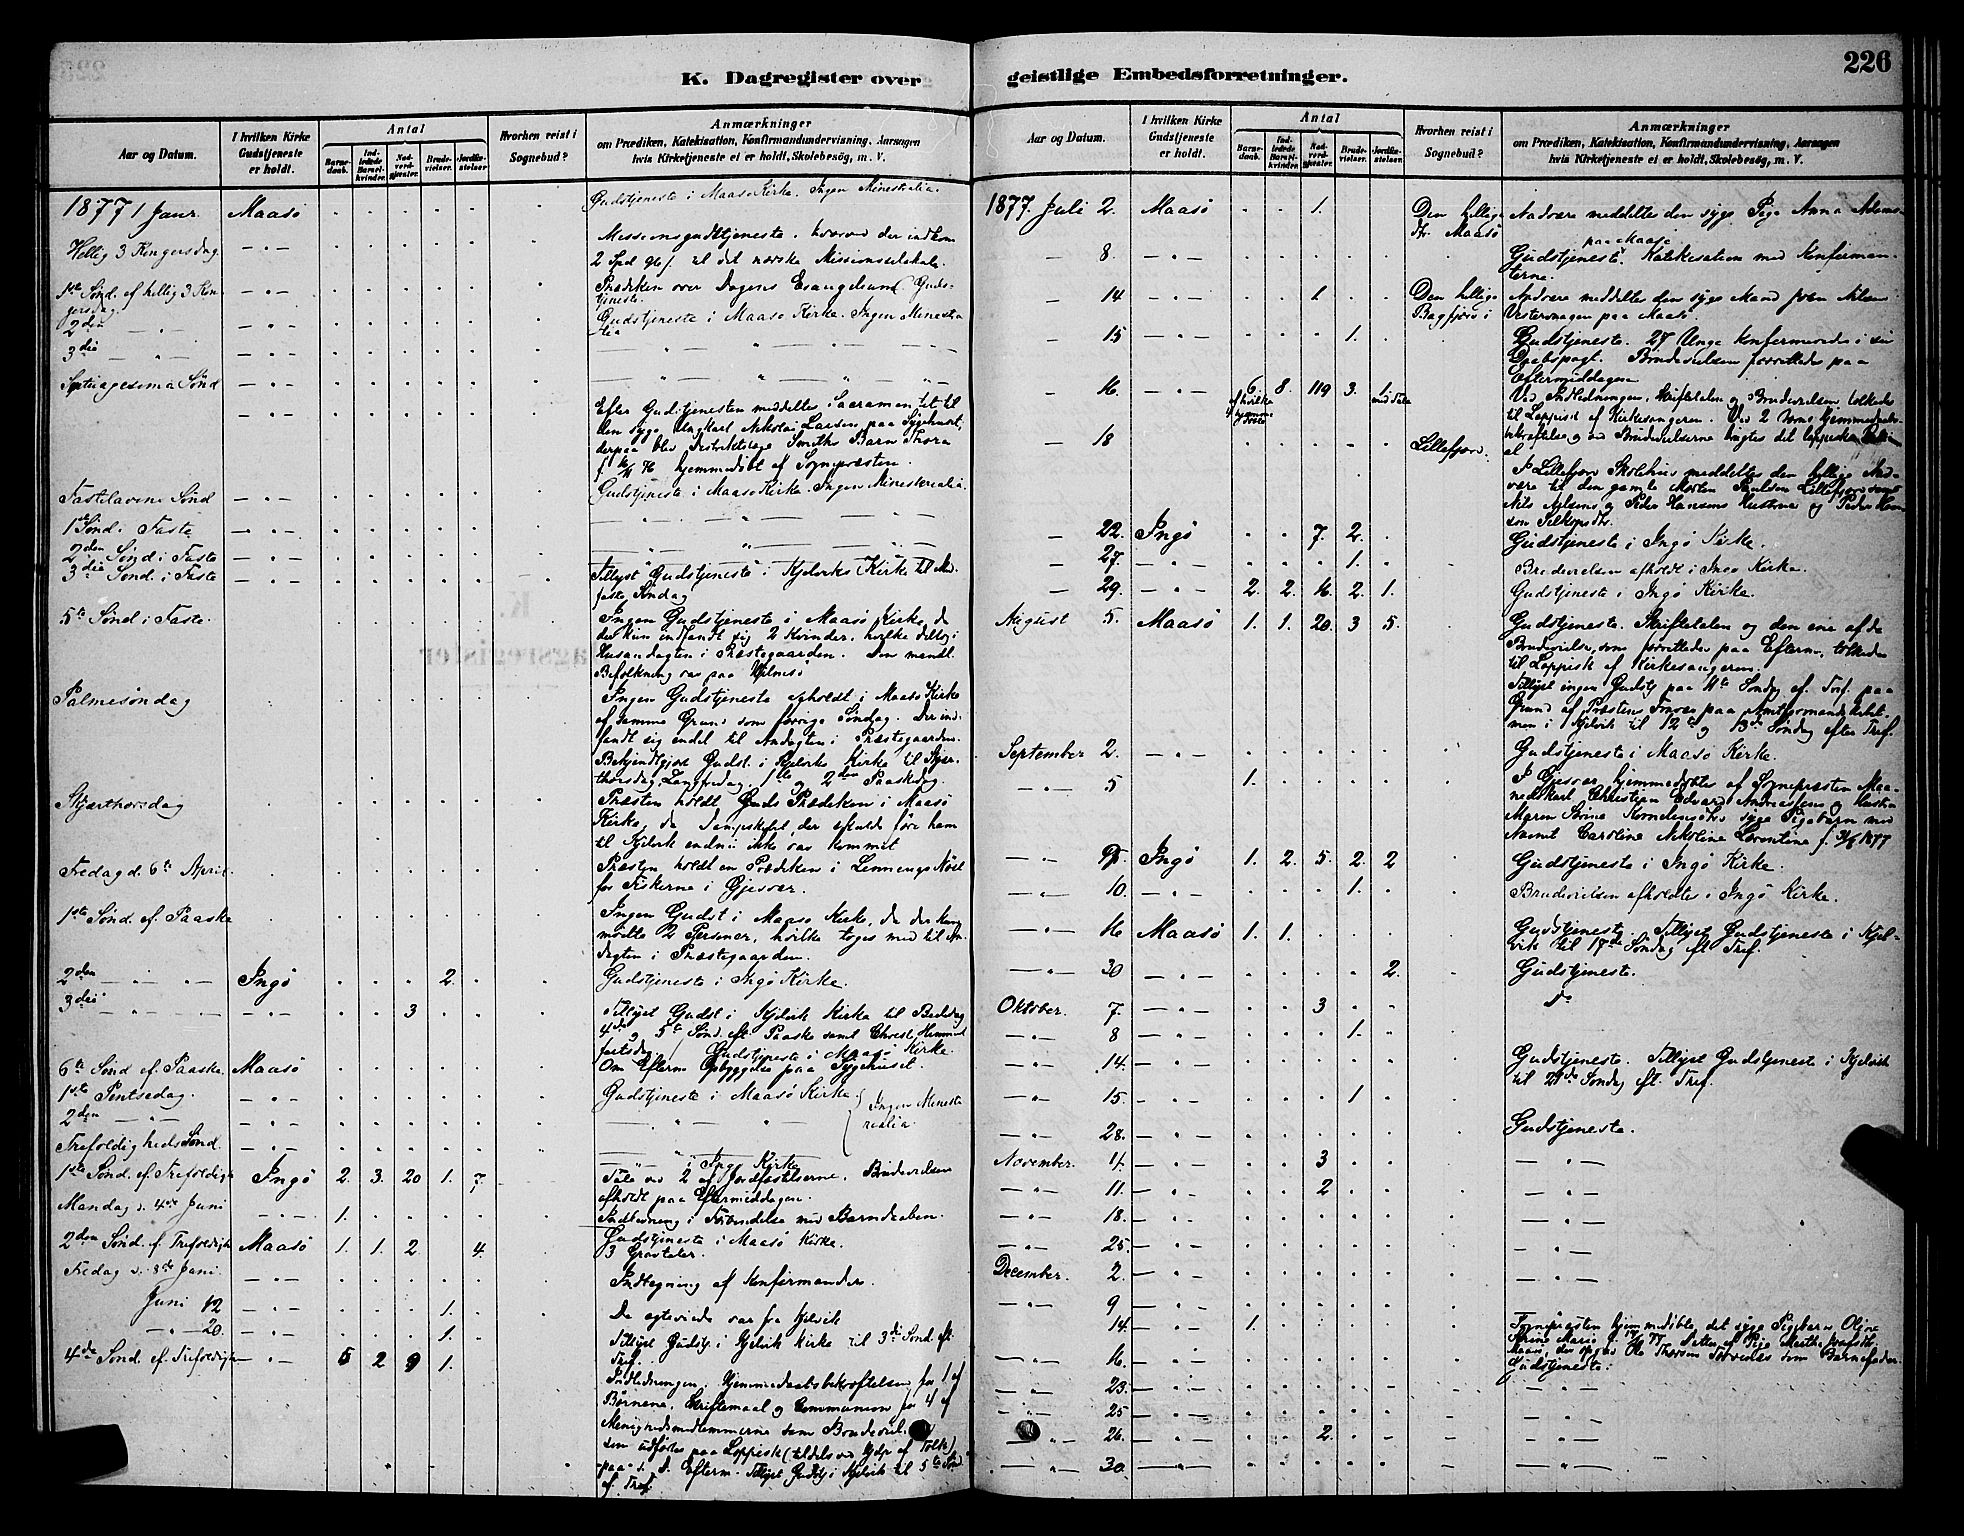 K. Dagregister over
Aar og Datum.
I hvilken Kirke Gudstjeneste er holdt.
Antal
Barnedaab.
Indledede Barselkvinder.
Nadverdgjæster.
Brudevielser.
Jordfæstelser
Hvorhen reist i Sognebud?
Anmærkninger
om Prædiken, Katekisation, Konfirmandundervisning, Aarsagen
hvis Kirketjeneste ei er holdt, Skolebesög, m. V.
1877 1 Janr. Maasø Gudstjeneste i Maasø Kirke. Ingen Ministralia.
Hellig 3 Kongersdag. Missionsgudstjeneste, hvorved der indkom
2 Spd 96 s. til det norske Missionsselskab.
1ste Sønd. ef hellig 3 Kongersdag. Prædiken over Dagens Evangelium Gudstjeneste.
2den Gudstjeneste i Maasø Kirke. Ingen Ministralia
3die
Septuagesima Sønd
Efter Gudstjenesten meddeltes Sacramentet til
den syge Ungkarl Nikolai Larsen paa Sygehuset,
derpaa blev Distriktslæge Smiths Barn Thora
hjemmedøbt af Sognepræsten.
Fastelavens Sønd Gudstjeneste i Maasø Kirke. Ingen Ministerialia.
1ste Sønd. i Faste
2den Sønd i Faste
3die Sønd. i Faste Tillyst Gudstjeneste i Kjelviks Kirke til Midfaste Søndag
5te Sønd i Faste. Ingen Gudstjeneste i Maasø Kirke, da
der kun indfandt sig 2 Kvinder, hvilke deltog i
Husandagten i Præstegaarden. Den mandl.
Befolkning var paa Hjelmsø
Palmesøndag Ingen Gudstjeneste afholdt i Maasø Kirke
af samme Grund som forrige Søndag. Der indfandt
sig endel til Andagten i Præstegaarden.
Bekjendtgjort Gudst. i Kjelviks Kirke til Skjærthorsdag,
Langfredag, 1ste og 2den Paaskedag.
Skjærthorsdag Præsten holdt Guds Prædiken i Maasø
Kirke, da Dampskibet, der skulde føre ham
til Kjelvik endnu ikke var kommet
Fredag d. 6te April. Præsten holdt en Prædiken i
for Fiskerne i Gjesvær.
1ste Sønd. ef. Paaske Ingen Gudst i Maasø Kirke, da der kun
mødte 2 Personer, hvilke toges med til Andagten i Præstegaarden.
2den Ingø 2. Gudstjeneste i Ingø Kirke.
3die 3 Tillyst Gudst i Kjelvik Kirke til Bededag
4de og 5te Sønd. eft Paaske samt Christi Himmelfartsdag. Gudstjeneste i Maasø Kirke.
6te Sønd ef. Paaske. Maasø Om Efterm Opbyggelse paa Sygehuset.
1ste Pintsedag. Gudstjeneste i Maasø Kirke. Ingen Ministerialia.
2den
Trefoldigheds Sønd.
1ste Sønd. ef. Trefoldigh Ingø 2. 3. 20 1. 7. i Ingø Kirke
Tale ved 2 af Jordfæstelserne. Brudevielsen
afholdt paa Eftermiddagen.
Mandag d. 4de Juni 1. Indledning i Forbindelse med Barnedaaben.
2den Sønd. ef. Trefoldigh Maasø 1. 1. 2 4. Gudstjeneste i Maasø Kirke.
3 Gravtaler.
Fredag d. 8de Juni. Indtegning af Konfirmander.
Juni 12 1. De egteviede var fra Kjelvik
20. 1. Tillyst Gudstj. i Kjelvik Kirke til 3die Sønd. eft. Tref.
4de Sønd. ef. Trefoldigh 5 2 9 1. Indledningen, Hjemmedaabsbekræftelsen for 1 af
Børnene, Skriftemaal og Communion for 4 af
Menighedsmedlemmerne samt Brudevielsen
udførtes paa Lappisk (tildels ved Hjelp af Tolk)
Efterm. Tillyst Gudstj i Kjelvik til 5te Sønd
ef. Tref
geistlige Embedsforretninger.
226
Aar og Datum.
I hvilken Kirke Gudstjeneste er holdt.
Antal
Barnedaab.
Indledede Barselkvinder.
Nadverdgjæster.
Brudevielser.
Jordfæstelser.
Hvorhen reist i Sognebud?
Anmærkninger
om Prædiken, Katekisation, Konfirmandundervisning, Aarsagen
hvis Kirketjeneste ei er holdt, Skolebesög, m. V.
1877. Juli 2. Maasø 1. Den hellige Nadvere meddeltes den syge Pige Anna Adamsdtr. Maasø
8. Gudstjeneste paa Maasø. Katekisation med Konfirmanterne.
14 1 Den hellige Nadvere meddeltes den syge Mand Nilsen
Bagfjord i Vestervaagen paa Maasø.
15 1. Gudstjeneste. 27 Unge konfirmerede i sin
Daabspagt. Brudevielsen forrettedes paa
Eftermiddagen
16 6. 8. 119 3. 1. Ved Indledningen, Skriftetalen og Brudevielsen tolkedes
af hvilke 4 hjemmedøbte
med Tale
til Lappisk af Kirkesangeren. Ved 2 Børns Hjemmedaabsbekræftelse
og ved Brudevielserne brugtes det lappiske
18 Lillefjord. I Lillefjord Skolehus meddeltes den hellige Nadvere
til den gamle Morten Paulsen Lillefjord samt
Nils Nilsens og Peder Hansens Hustruer og Peder
22. Ingø 7. 2. Gudstjeneste i Ingø Kirke.
27. 1. Brudevielsen afholdt i Ingø Kirke.
29. 2. 2. 16. 2. 1. Gudstjeneste i Ingø Kirke.
August 5. Maasø 1. 1. 20. 3 5. Gudstjeneste. Skriftetalen og den ene af de
Brudevielser, som forrettedes paa Efterm., tolkedes
til Lappisk af Kirkesangeren.
Tillyst ingen Gudstj paa 11te Søndag ef. Tref. paa
Grund af Præstens Fravær paa Amtsformandskabet
men i Kjelvik til 12te og 13de Søndag efter Tref.
September 2. Gudstjeneste i Maasø Kirke.
5 1. I Gjesvær hjemmedøbtes af Sognepræsten
Christian Edvard Andreassens og Hustru
Maren syge Pigebarn med
Navnet Caroline Nikoline Lorentine f. 1877
9. Ingø 1. 2. 5. 2. 2 Gudstjeneste i Ingø Kirke.
10. 1. Brudevielsen afholdtes i Ingø Kirke.
16 Maasø 1. 1. Gudstjeneste. Tillyst Gudstjeneste i Kjelvik
til 17de Søndag eft Tref.
30 2. Gudstjeneste.
Oktober. 7. 3 do
8 1.
14. Gudstjeneste. Tillyst Gudstjeneste i Kjelvik
til 21de Søndag eft. Tref.
15. 1
28. Gudstjeneste.
November. 4. 3
11. 2
18.
25.
December. 2.
9
14. 1. Sognepræsten hjemmedøbte det syge Pigebarn Oline
Maasø, der opgav Ole som Barnefader.
16. Gudstjeneste.
23.
25
26. 2.
30.